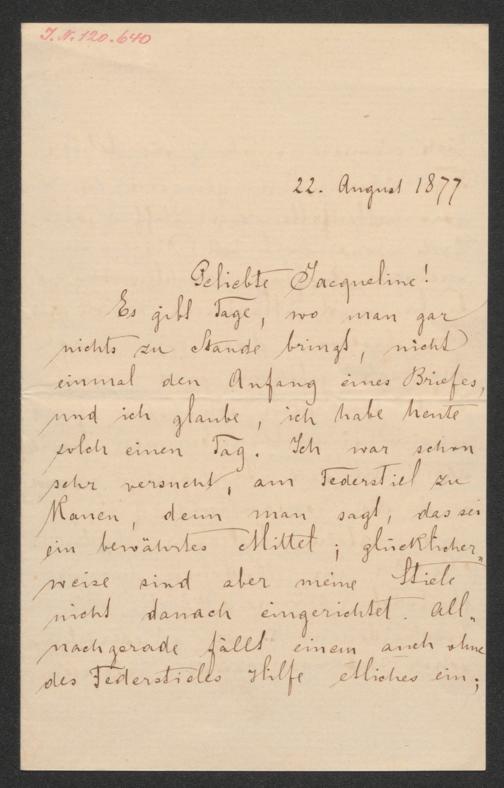 I.N.120.640
22. August 1877
Geliebte Jacqueline!
Es gibt Tage, wo man gar
nichts zu Stande bringt, nicht
einmal den Anfang eines Briefes,
und ich glaube, ich habe heute
solch einen Tag. Ich war schon
sehr versucht, am Federstiel zu
Kauen, denn man sagt, das sei
ein bewährtes Mittel; glücklicher-
weise sind aber meine Stiele
nicht danach eingerichtet. All-
nachgerade fällt einem auch ohne
des Federstieles Hilfe etliches ein;